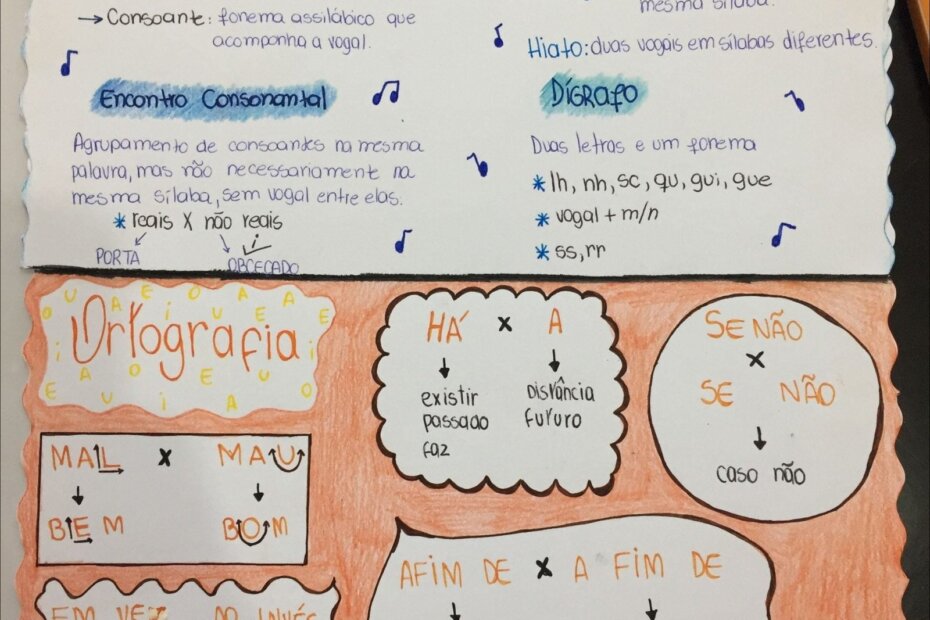 → Consoante: fonema assilábico que
acompanha a vogal.
mesma sílaba.
Hiato: duas vogais em sílabas diferentes.
Encontro Consonantal
Agrupamento de consoantes na mesma
palavra, mas não necessariamente na
mesma sílaba, sem vogal entre elas.
* reais X não reais
PORTA OBCECADO
i
Dígrafo
Duas letras e um fonema
* lh, nh, sc, qu, gui, gue
* vogal + m/n
* ss, rr
Ortografia
HÁ x A
existir
passado
faz
Distância
Futuro
SE NÃO
x
SE NÃO
caso não
MAL x MAU
BEM BOM
AFIM DE x A FIM DE
EM VEZ AO INVÉS